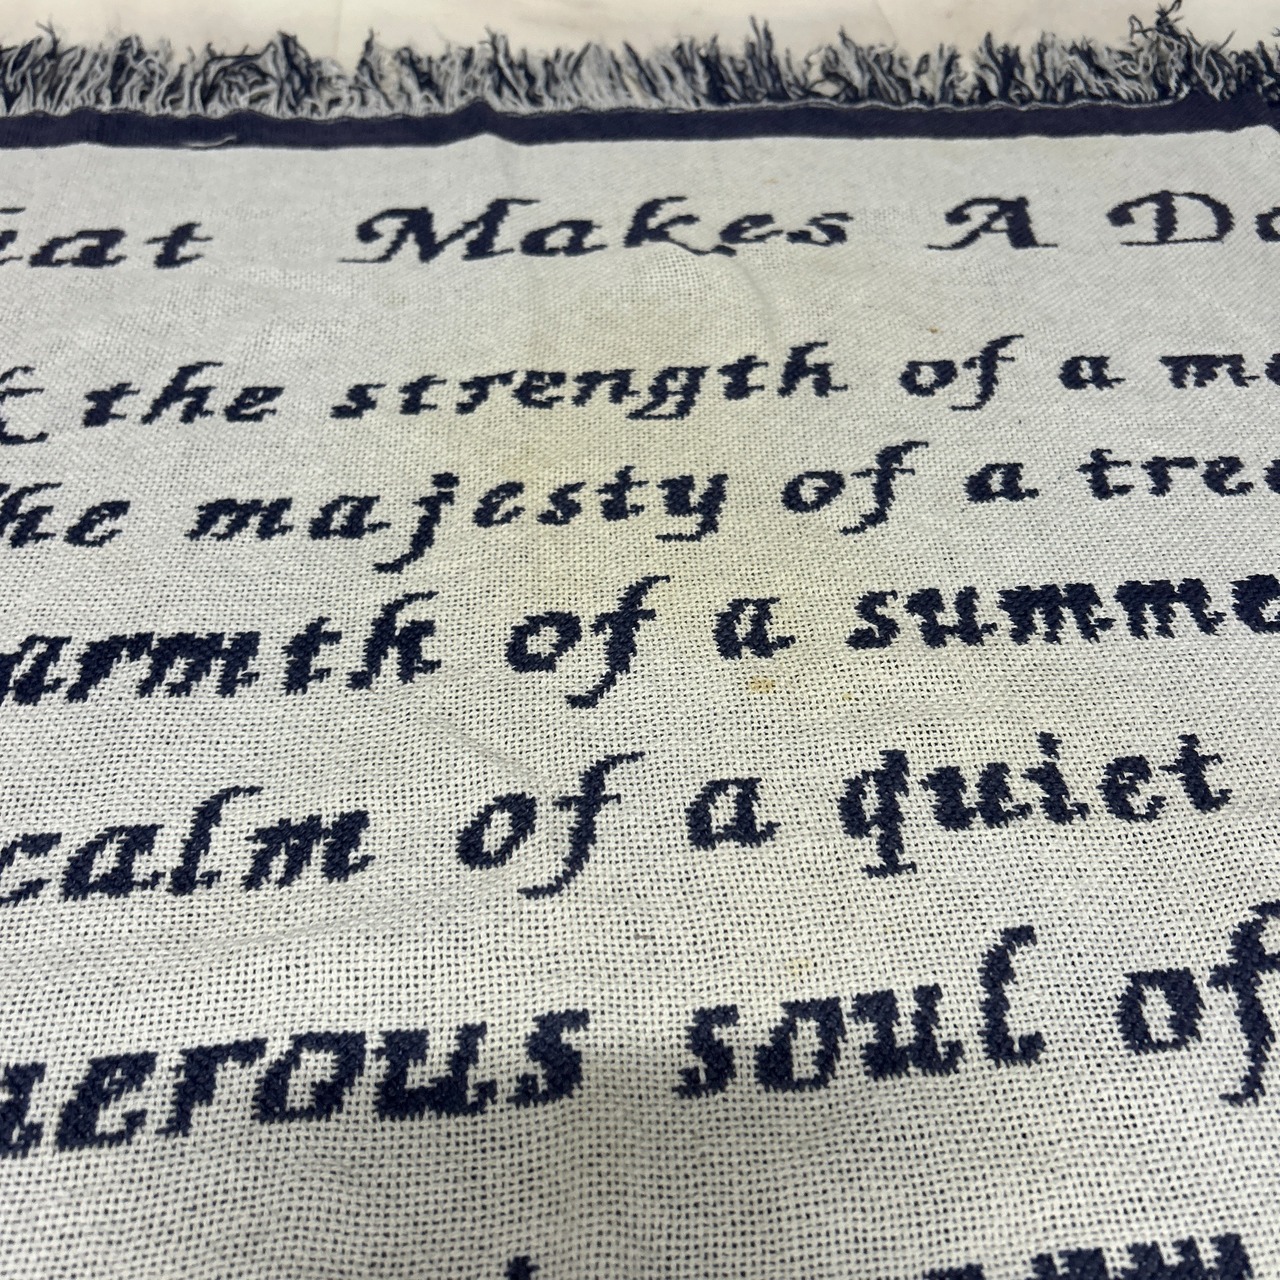 hat Makes A Da
k the strength of a mo
he majesty of a tree
armth of a summe
calm of a quiet
nerous soul of